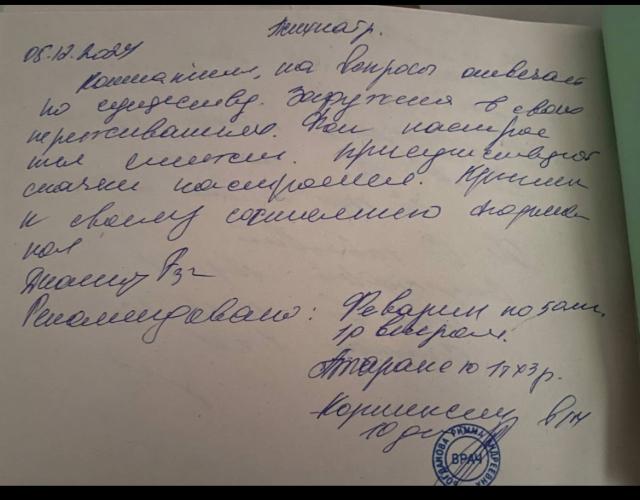 Психиатр.
05.12.2024
Контактна, на вопросы отвечает
по существу. Загружена в свои
переживания. Фон настрое
ния снижен. Присутствуют
скачки настроения. Критика
к своему состоянию формаль
ная
Диагноз F
Рекомендовано: Феварин по 50мг.
1р вечером.
Атаракс ю 1т х 3 р.
Кортексин в/м
10 дн
БОГДАНОВА РИММА АНДРЕЕВНА
ВРАЧ